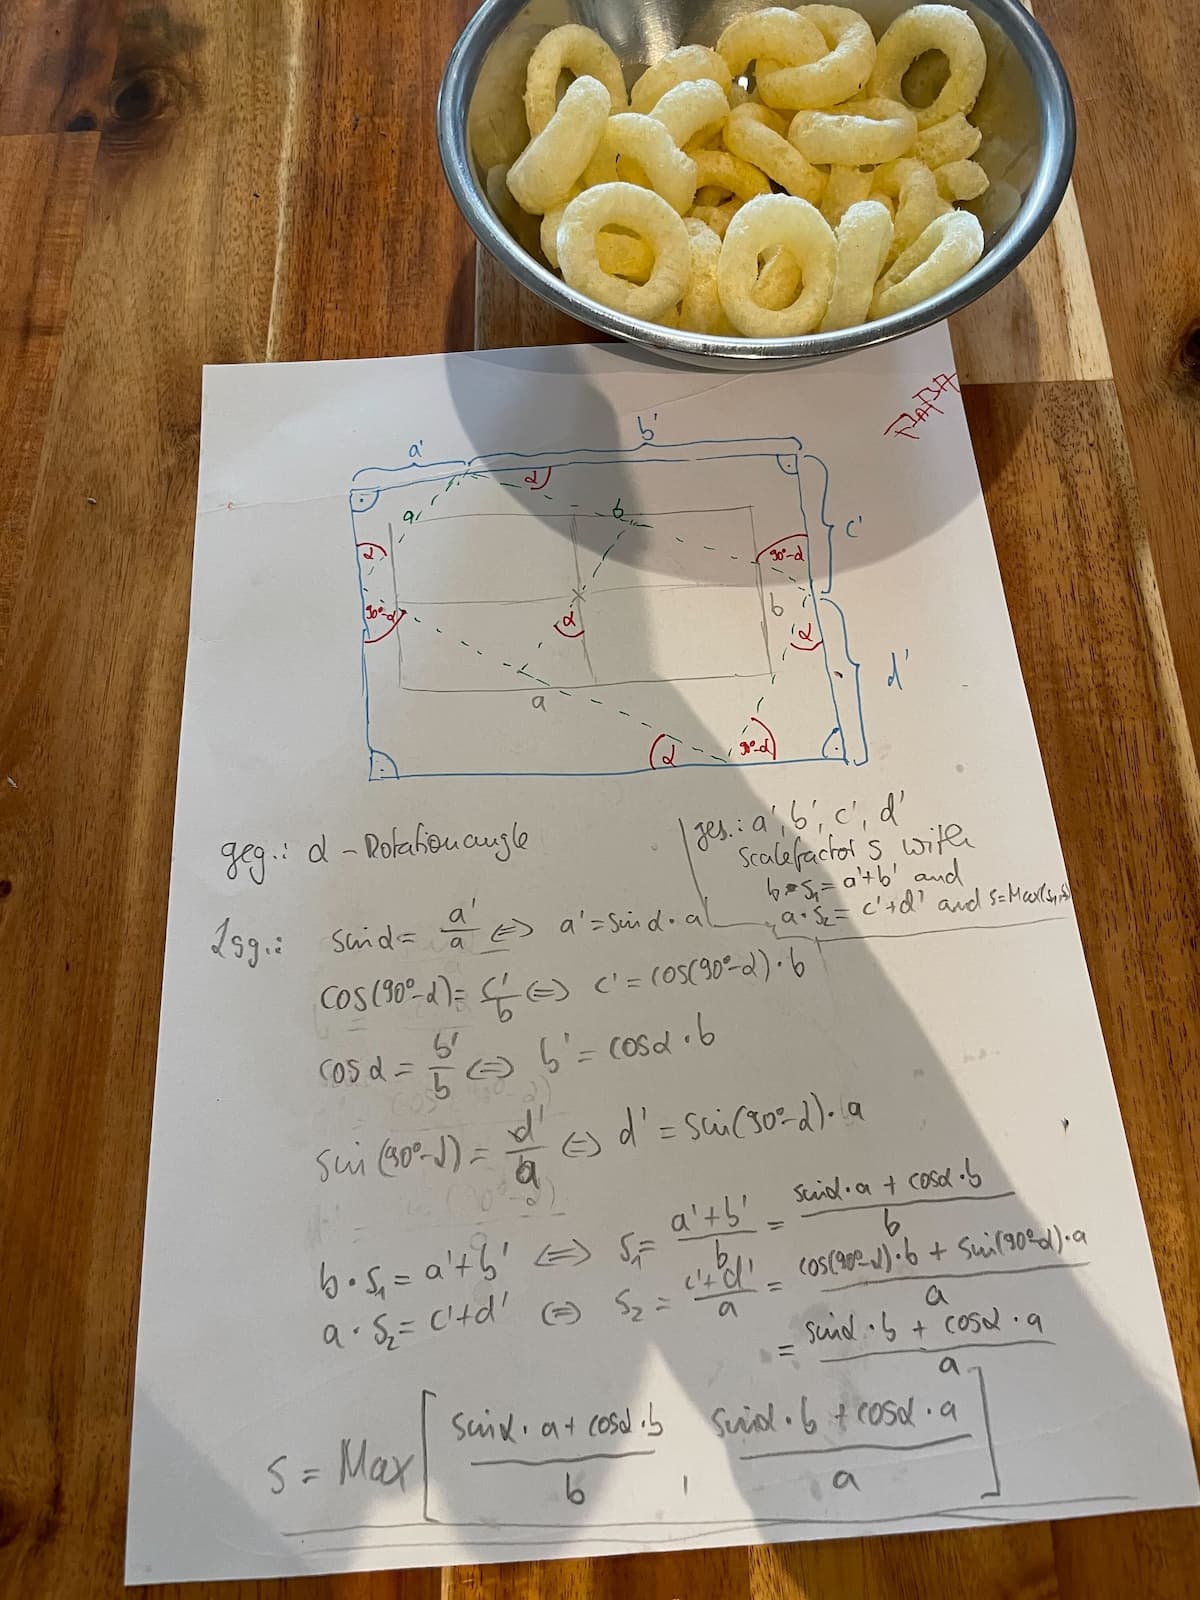 PAPA
a' b'
α
a b
c'
α 90°-α
90°-α α b α
d'
a
α 90°-α
geg.: α - Rotationangle
ges.: a', b', c', d'
scalefactor s with
b·s₁ = a'+b' and
a·s₂ = c'+d' and s=Max(s₁,s₂)
Lsg.: sinα = a'/a ⇔ a' = sinα·a
cos(90°-α) = c'/b ⇔ c' = cos(90°-α)·b
cosα = b'/b ⇔ b' = cosα·b
sin(90°-α) = d'/a ⇔ d' = sin(90°-α)·a
b·s₁ = a'+b' ⇔ s₁ = (a'+b')/b = (sinα·a + cosα·b)/b
a·s₂ = c'+d' ⇔ s₂ = (c'+d')/a = (cos(90°-α)·b + sin(90°-α)·a)/a
= (sinα·b + cosα·a)/a
s = Max[(sinα·a + cosα·b)/b , (sinα·b + cosα·a)/a]